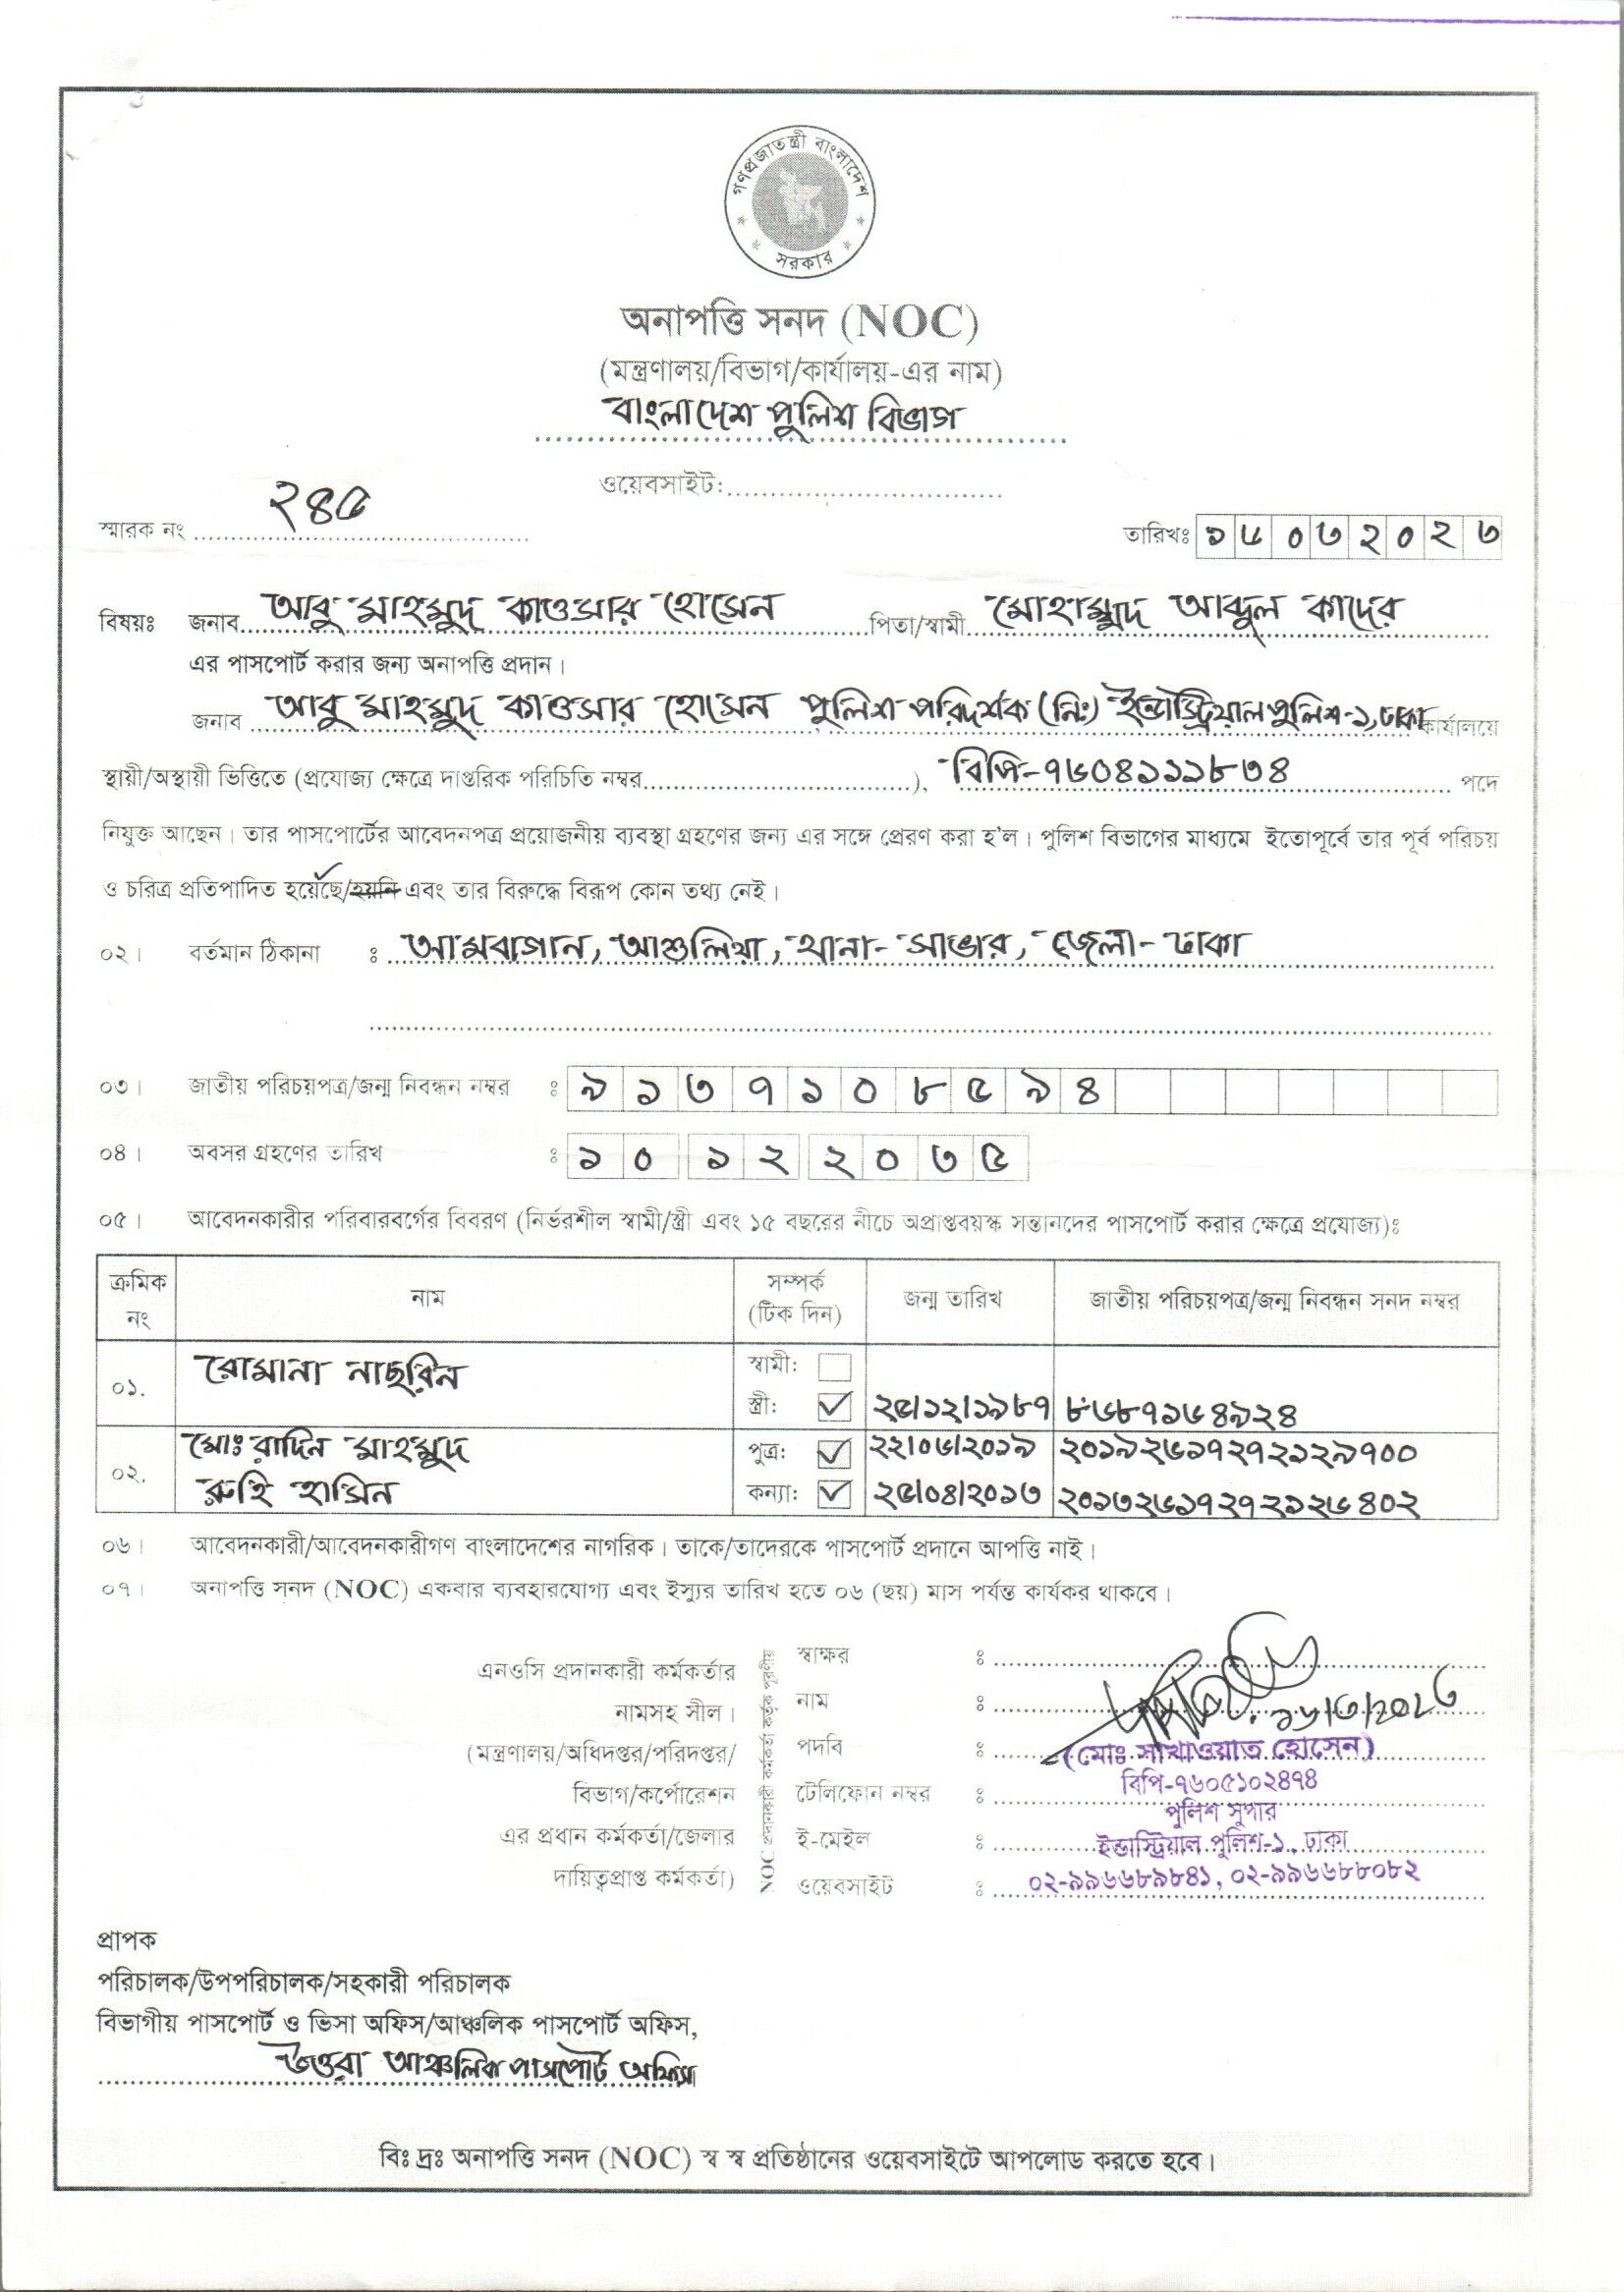 গণপ্রজাতন্ত্রী বাংলাদেশ
সরকার
অনাপত্তি সনদ (NOC)
(মন্ত্রণালয়/বিভাগ/কার্যালয়-এর নাম)
বাংলাদেশ পুলিশ বিভাগ
ওয়েবসাইট:
স্মারক নং ২৪৫
তারিখঃ ১৬০৩২০২৩
বিষয়ঃ জনাব আবু মাহমুদ কাওসার হোসেন পিতা/স্বামী মোহাম্মুদ আব্দুল কাদের
এর পাসপোর্ট করার জন্য অনাপত্তি প্রদান।
জনাব আবু মাহমুদ কাওসার হোসেন পুলিশ পরিদর্শক (নিঃ) ইন্ডাস্ট্রিয়াল পুলিশ-১, ঢাকা কার্যালয়ে
স্থায়ী/অস্থায়ী ভিত্তিতে (প্রযোজ্য ক্ষেত্রে দাপ্তরিক পরিচিতি নম্বর), বিপি-৭৬০৪১১১৮৩৪ পদে
নিযুক্ত আছেন। তার পাসপোর্টের আবেদনপত্র প্রয়োজনীয় ব্যবস্থা গ্রহণের জন্য এর সঙ্গে প্রেরণ করা হ'ল। পুলিশ বিভাগের মাধ্যমে ইতোপূর্বে তার পূর্ব পরিচয়
ও চরিত্র প্রতিপাদিত হয়েছে/হয়নি এবং তার বিরুদ্ধে বিরূপ কোন তথ্য নেই।
০২। বর্তমান ঠিকানা ঃ আমবাগান, আশুলিয়া, থানা- সাভার, জেলা- ঢাকা
০৩। জাতীয় পরিচয়পত্র/জন্ম নিবন্ধন নম্বর ঃ ৯১৩৭১০৮৫৯৪
০৪। অবসর গ্রহণের তারিখ ঃ ১০ ১২ ২০৩৫
০৫। আবেদনকারীর পরিবারবর্গের বিবরণ (নির্ভরশীল স্বামী/স্ত্রী এবং ১৫ বছরের নীচে অপ্রাপ্তবয়স্ক সন্তানদের পাসপোর্ট করার ক্ষেত্রে প্রযোজ্য)ঃ
ক্রমিক নং নাম সম্পর্ক (টিক দিন) জন্ম তারিখ জাতীয় পরিচয়পত্র/জন্ম নিবন্ধন সনদ নম্বর
০১. রোমানা নাছরিন স্বামী:
স্ত্রী: ২৫/১২/১৯৮৭ ৮৬৮৭১৬৪৯২৪
০২. মোঃ রাদিন মাহমুদ পুত্র: ২২/০৬/২০১৯ ২০১৯২৬১৭২৭২১২৯৭০০
রুহি হাসিন কন্যা: ২৫/০৪/২০১৩ ২০১৩২৬১৭২৭২১২৬৪০২
০৬। আবেদনকারী/আবেদনকারীগণ বাংলাদেশের নাগরিক। তাকে/তাদেরকে পাসপোর্ট প্রদানে আপত্তি নাই।
০৭। অনাপত্তি সনদ (NOC) একবার ব্যবহারযোগ্য এবং ইস্যুর তারিখ হতে ০৬ (ছয়) মাস পর্যন্ত কার্যকর থাকবে।
এনওসি প্রদানকারী কর্মকর্তার
নামসহ সীল।
(মন্ত্রণালয়/অধিদপ্তর/পরিদপ্তর/
বিভাগ/কর্পোরেশন
এর প্রধান কর্মকর্তা/জেলার
দায়িত্বপ্রাপ্ত কর্মকর্তা)
NOC প্রদানকারী কর্মকর্তা কর্তৃক পূরণীয়
স্বাক্ষর ঃ
নাম ঃ ১৬/৩/২০২৩
পদবি ঃ (মোঃ সাখাওয়াত হোসেন)
বিপি-৭৬০৫১০২৪৭৪
টেলিফোন নম্বর ঃ পুলিশ সুপার
ই-মেইল ঃ ইন্ডাস্ট্রিয়াল পুলিশ-১, ঢাকা
ওয়েবসাইট ঃ ০২-৯৯৬৬৮৯৮৪১, ০২-৯৯৬৬৮৮০৮২
প্রাপক
পরিচালক/উপপরিচালক/সহকারী পরিচালক
বিভাগীয় পাসপোর্ট ও ভিসা অফিস/আঞ্চলিক পাসপোর্ট অফিস,
উত্তরা আঞ্চলিক পাসপোর্ট অফিস
বিঃ দ্রঃ অনাপত্তি সনদ (NOC) স্ব স্ব প্রতিষ্ঠানের ওয়েবসাইটে আপলোড করতে হবে।